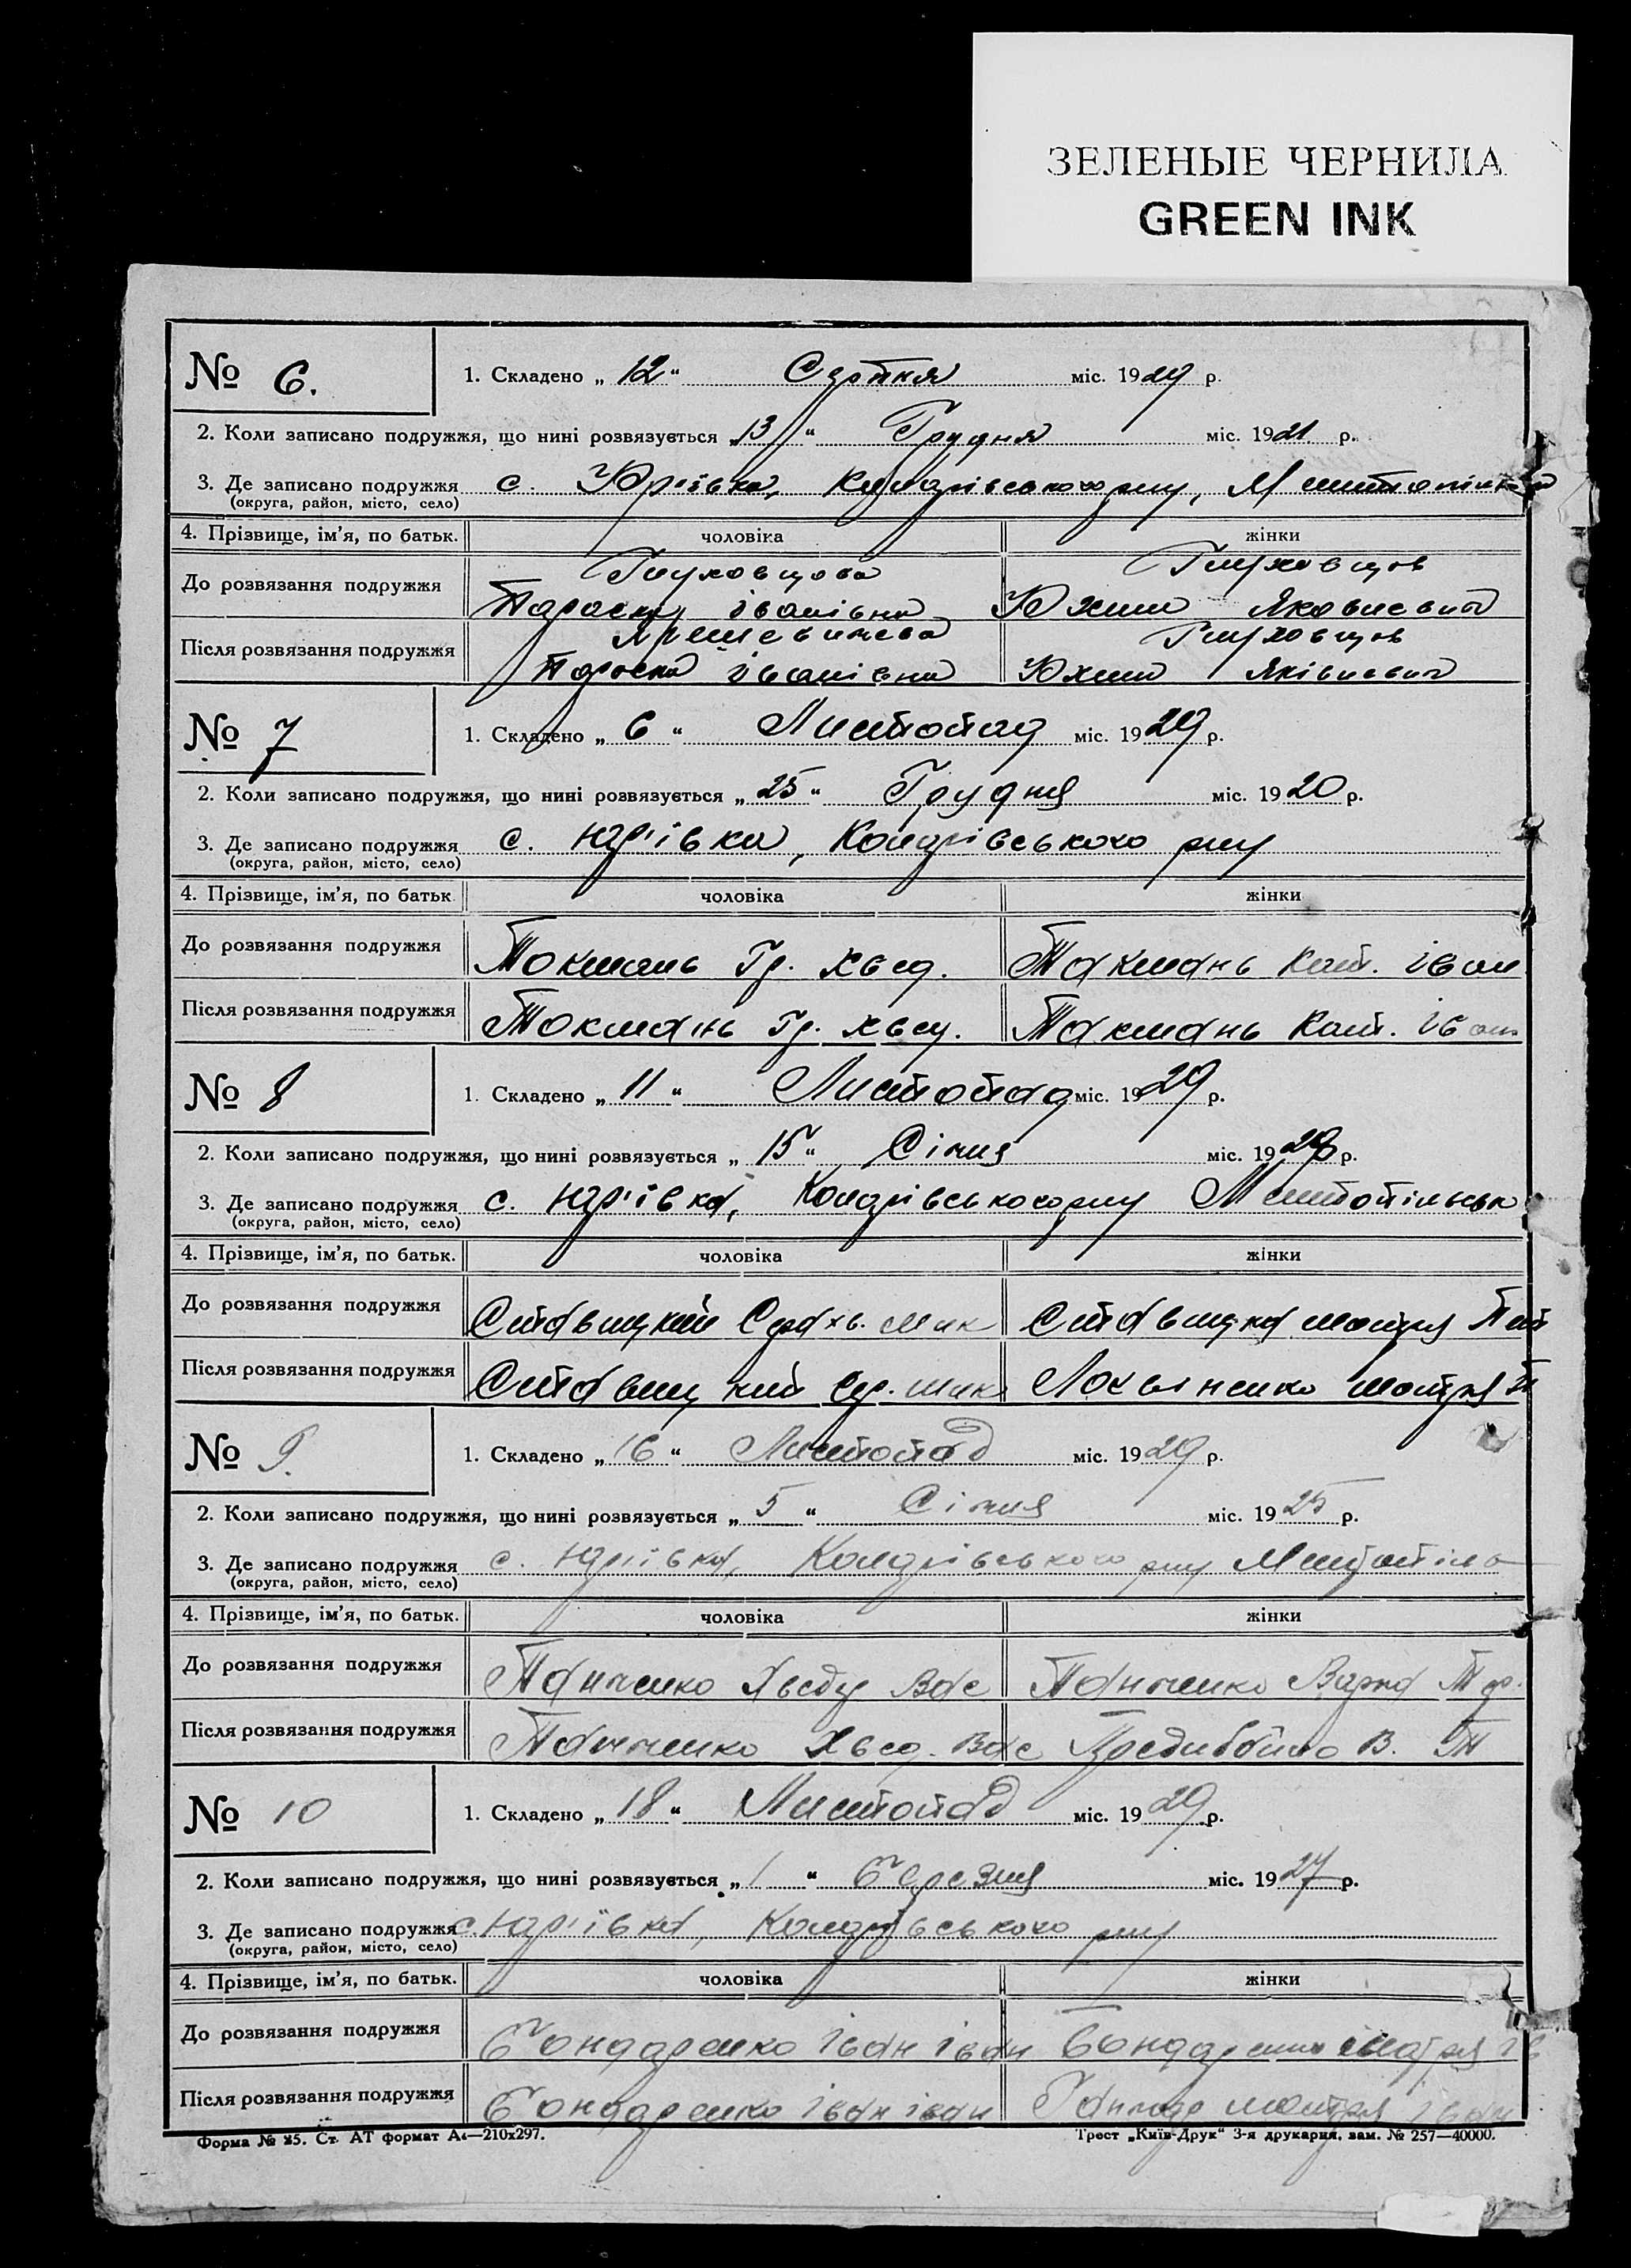 ЗЕЛЕНЫЕ ЧЕРНИЛА
GREEN INK
№ 6.
1. Складено „ 12 “ Серпня міс. 1929 р.
2. Коли записано подружжя, що нині розвязується „ 13 “ Грудня міс. 1921 р.
3. Де записано подружжя с. Юріївка,
(округа, район, місто, село)
4. Прізвище, ім’я, по батьк. чоловіка жінки
До розвязання подружжя
Параска Іванівна Юхим
Після розвязання подружжя
Параска Іванівна Юхим
№ 7
1. Складено „ 6 “ Листопад міс. 1929 р.
2. Коли записано подружжя, що нині розвязується „ 25 “ Грудня міс. 1920 р.
3. Де записано подружжя с. Юріївка, р-ну
(округа, район, місто, село)
4. Прізвище, ім’я, по батьк. чоловіка жінки
До розвязання подружжя Токмань Гр. Хвед. Токмань Кат. Іван
Після розвязання подружжя Токмань Гр. Хвед. Токмань Кат. Іван
№ 8
1. Складено „ 11 “ Листопад міс. 1929 р.
2. Коли записано подружжя, що нині розвязується „ 15 “ Січня міс. 19 р.
3. Де записано подружжя с. Юріївка, р-ну
(округа, район, місто, село)
4. Прізвище, ім’я, по батьк. чоловіка жінки
До розвязання подружжя Ставицкий Мик Ставицка Мотря
Після розвязання подружжя Ставицкий Мотря
№ 9.
1. Складено „ 16 “ Листопад міс. 1929 р.
2. Коли записано подружжя, що нині розвязується „ 5 “ Січня міс. 1925 р.
3. Де записано подружжя с. Юріївка, р-ну
(округа, район, місто, село)
4. Прізвище, ім’я, по батьк. чоловіка жінки
До розвязання подружжя Панченко Вас Панченко Варка
Після розвязання подружжя Панченко Хвед. Вас В.
№ 10
1. Складено „ 18 “ Листопад міс. 1929 р.
2. Коли записано подружжя, що нині розвязується „ 1 “ Березня міс. 1927 р.
3. Де записано подружжя с. Юріївка, р-ну
(округа, район, місто, село)
4. Прізвище, ім’я, по батьк. чоловіка жінки
До розвязання подружжя Бондаренко Іван Іван Бондаренко Мотря Ів
Після розвязання подружжя Бондаренко Іван Іван Мотря Іван
Форма № 25. Ст. АТ формат А4—210х297. Трест „Київ-Друк“ 3-я друкарня, зам. № 257—40000.